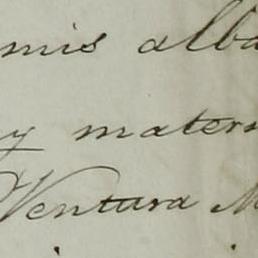 mis alba
y mater
Ventura M